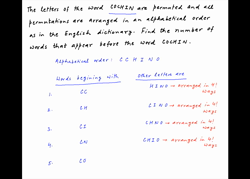 The letters of the word COCHIN are permuted and all
permutations are arranged in an alphabetical order
as in the English dictionary. Find the number of
words that appear before the word COCHIN.
Alphabetical order: C C H I N O
Words begining with Other letters are
1. CC HINO → arranged in 4! ways
2. CH CINO → arranged in 4! ways
3. CI CHNO → arranged in 4! ways
4. CN CHIO → arranged in 4! ways
5. CO